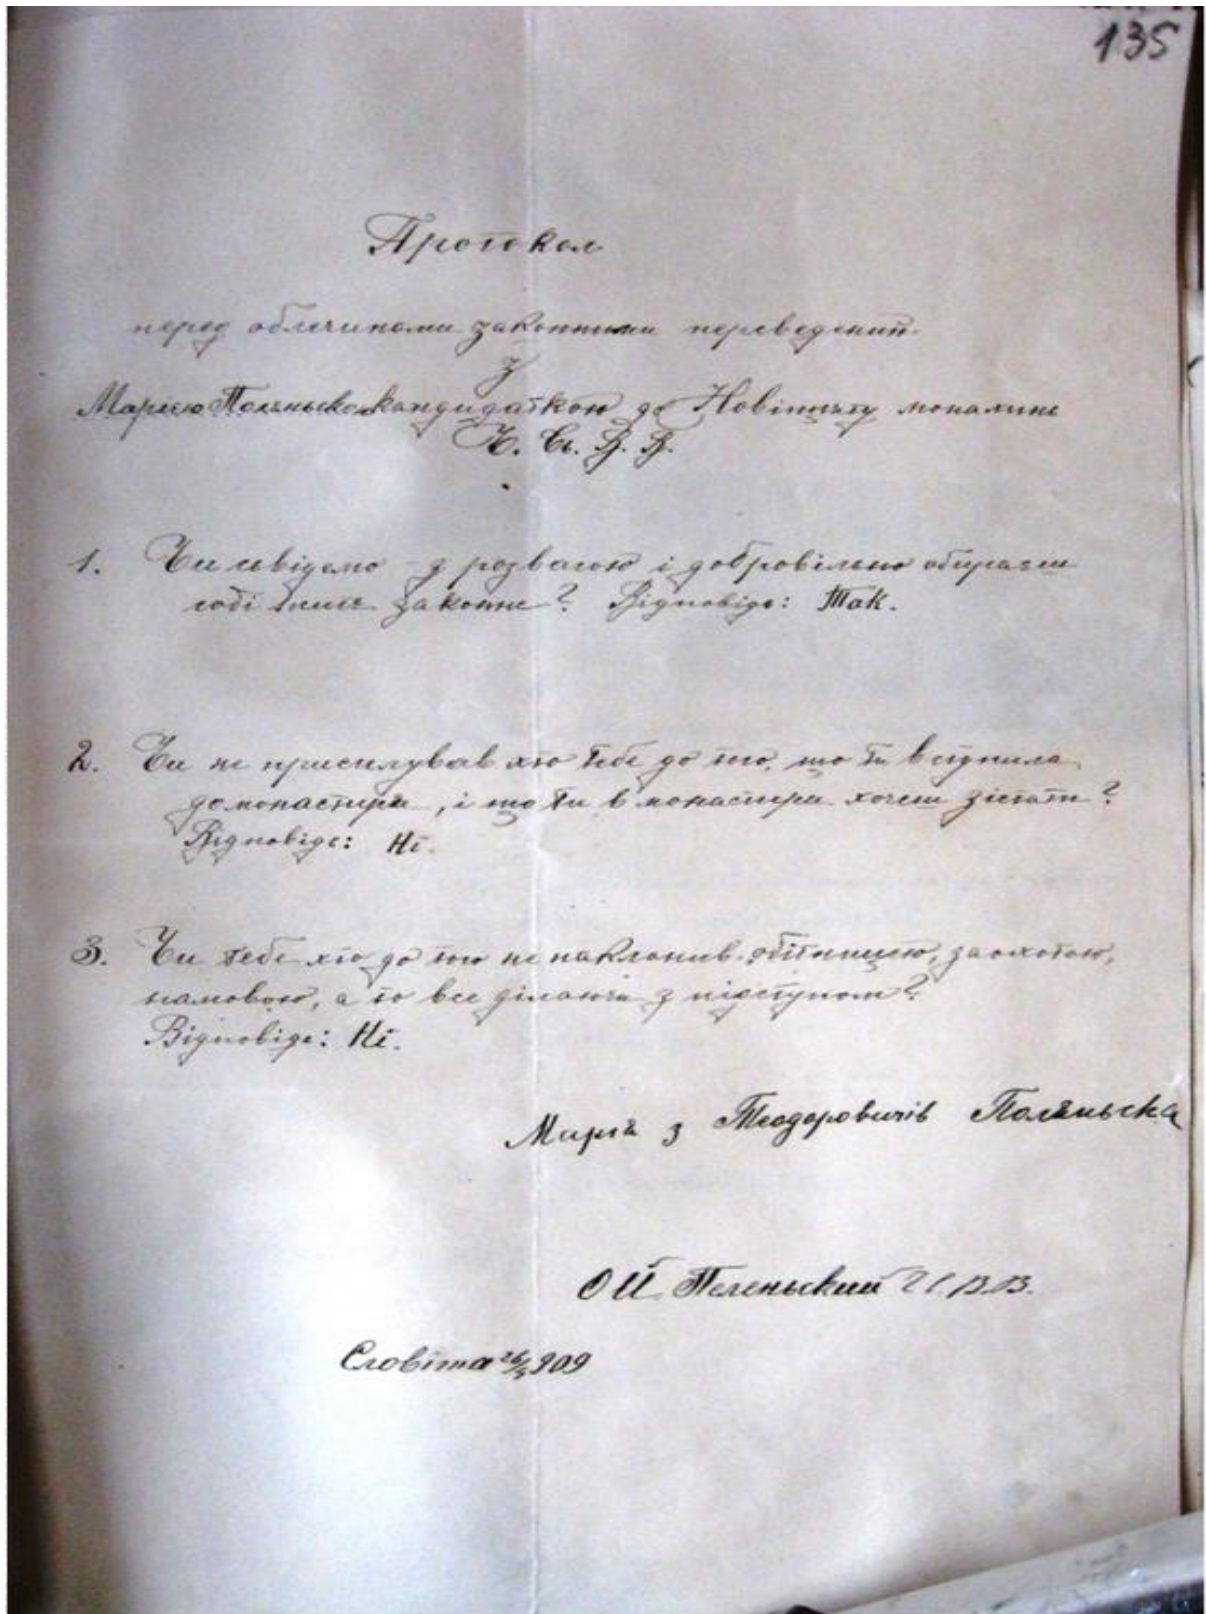 135
Протокол
перед облечинами законними переведений
з
Марією Поляньскою кандидаткою до Новіцияту монахинь
Ч. Св. В. В.
1. Чи свідомо з розвагою і добровільно обираєш
собі житє законне? Відповідь: Так.
2. Чи не присилував хто тебе до того, що ти вступила
до монастиря, і що ти в монастири хочеш зістати?
Відповідь: Ні.
3. Чи тебе хто до того не наклонив обітницею, заохотою,
намовою, а то все ділаючи з підступом?
Відповідь: Ні.
Марія з Теодоровичів Поляньска
Словіта 26/5 909